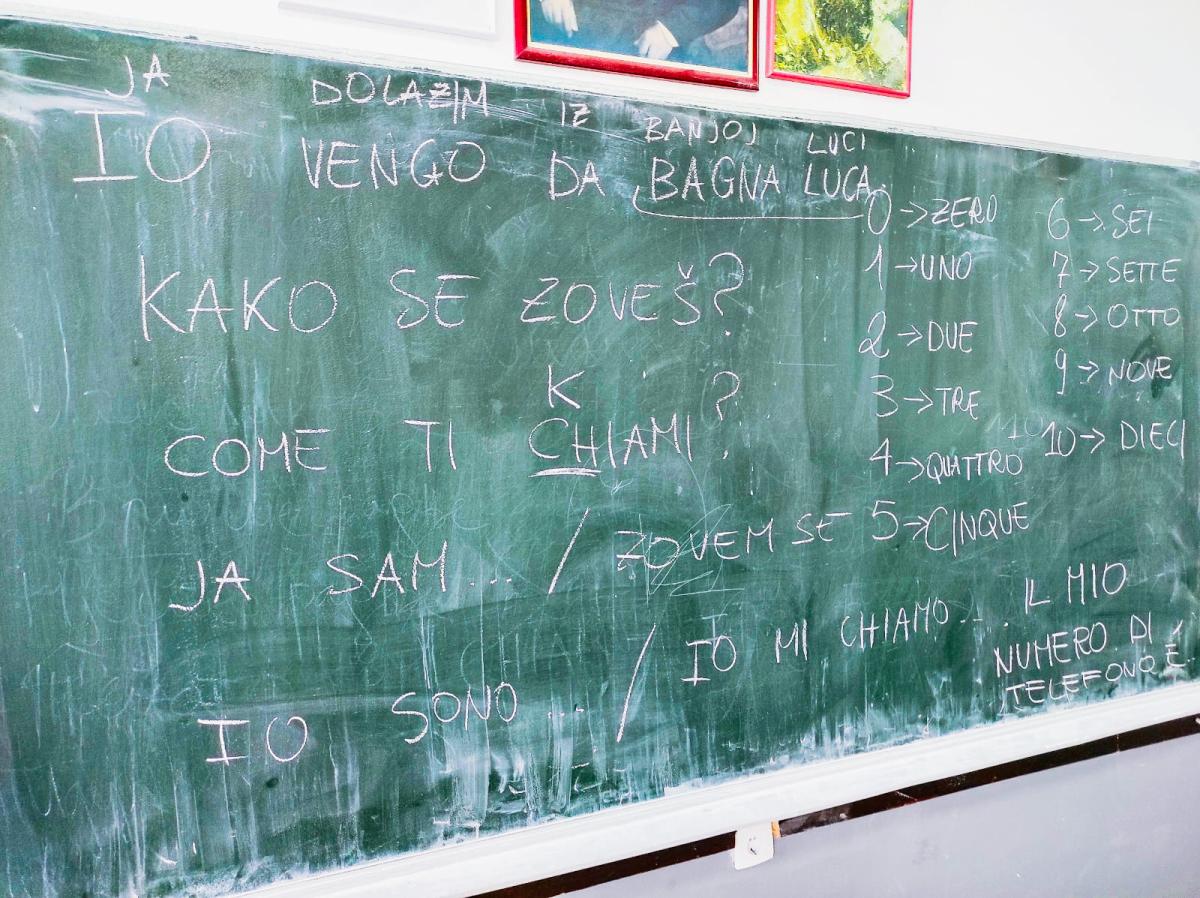 JA DOLAZIM IZ BANJOJ LUCI
IO VENGO DA BAGNA LUCA
KAKO SE ZOVEŠ?
K
COME TI CHIAMI?
JA SAM... / ZOVEM SE
IO SONO ... / IO MI CHIAMO...
0→ZERO
1→UNO
2→DUE
3→TRE
4→QUATTRO
5→CINQUE
6→SEI
7→SETTE
8→OTTO
9→NOVE
10→DIECI
IL MIO
NUMERO DI
TELEFONO É